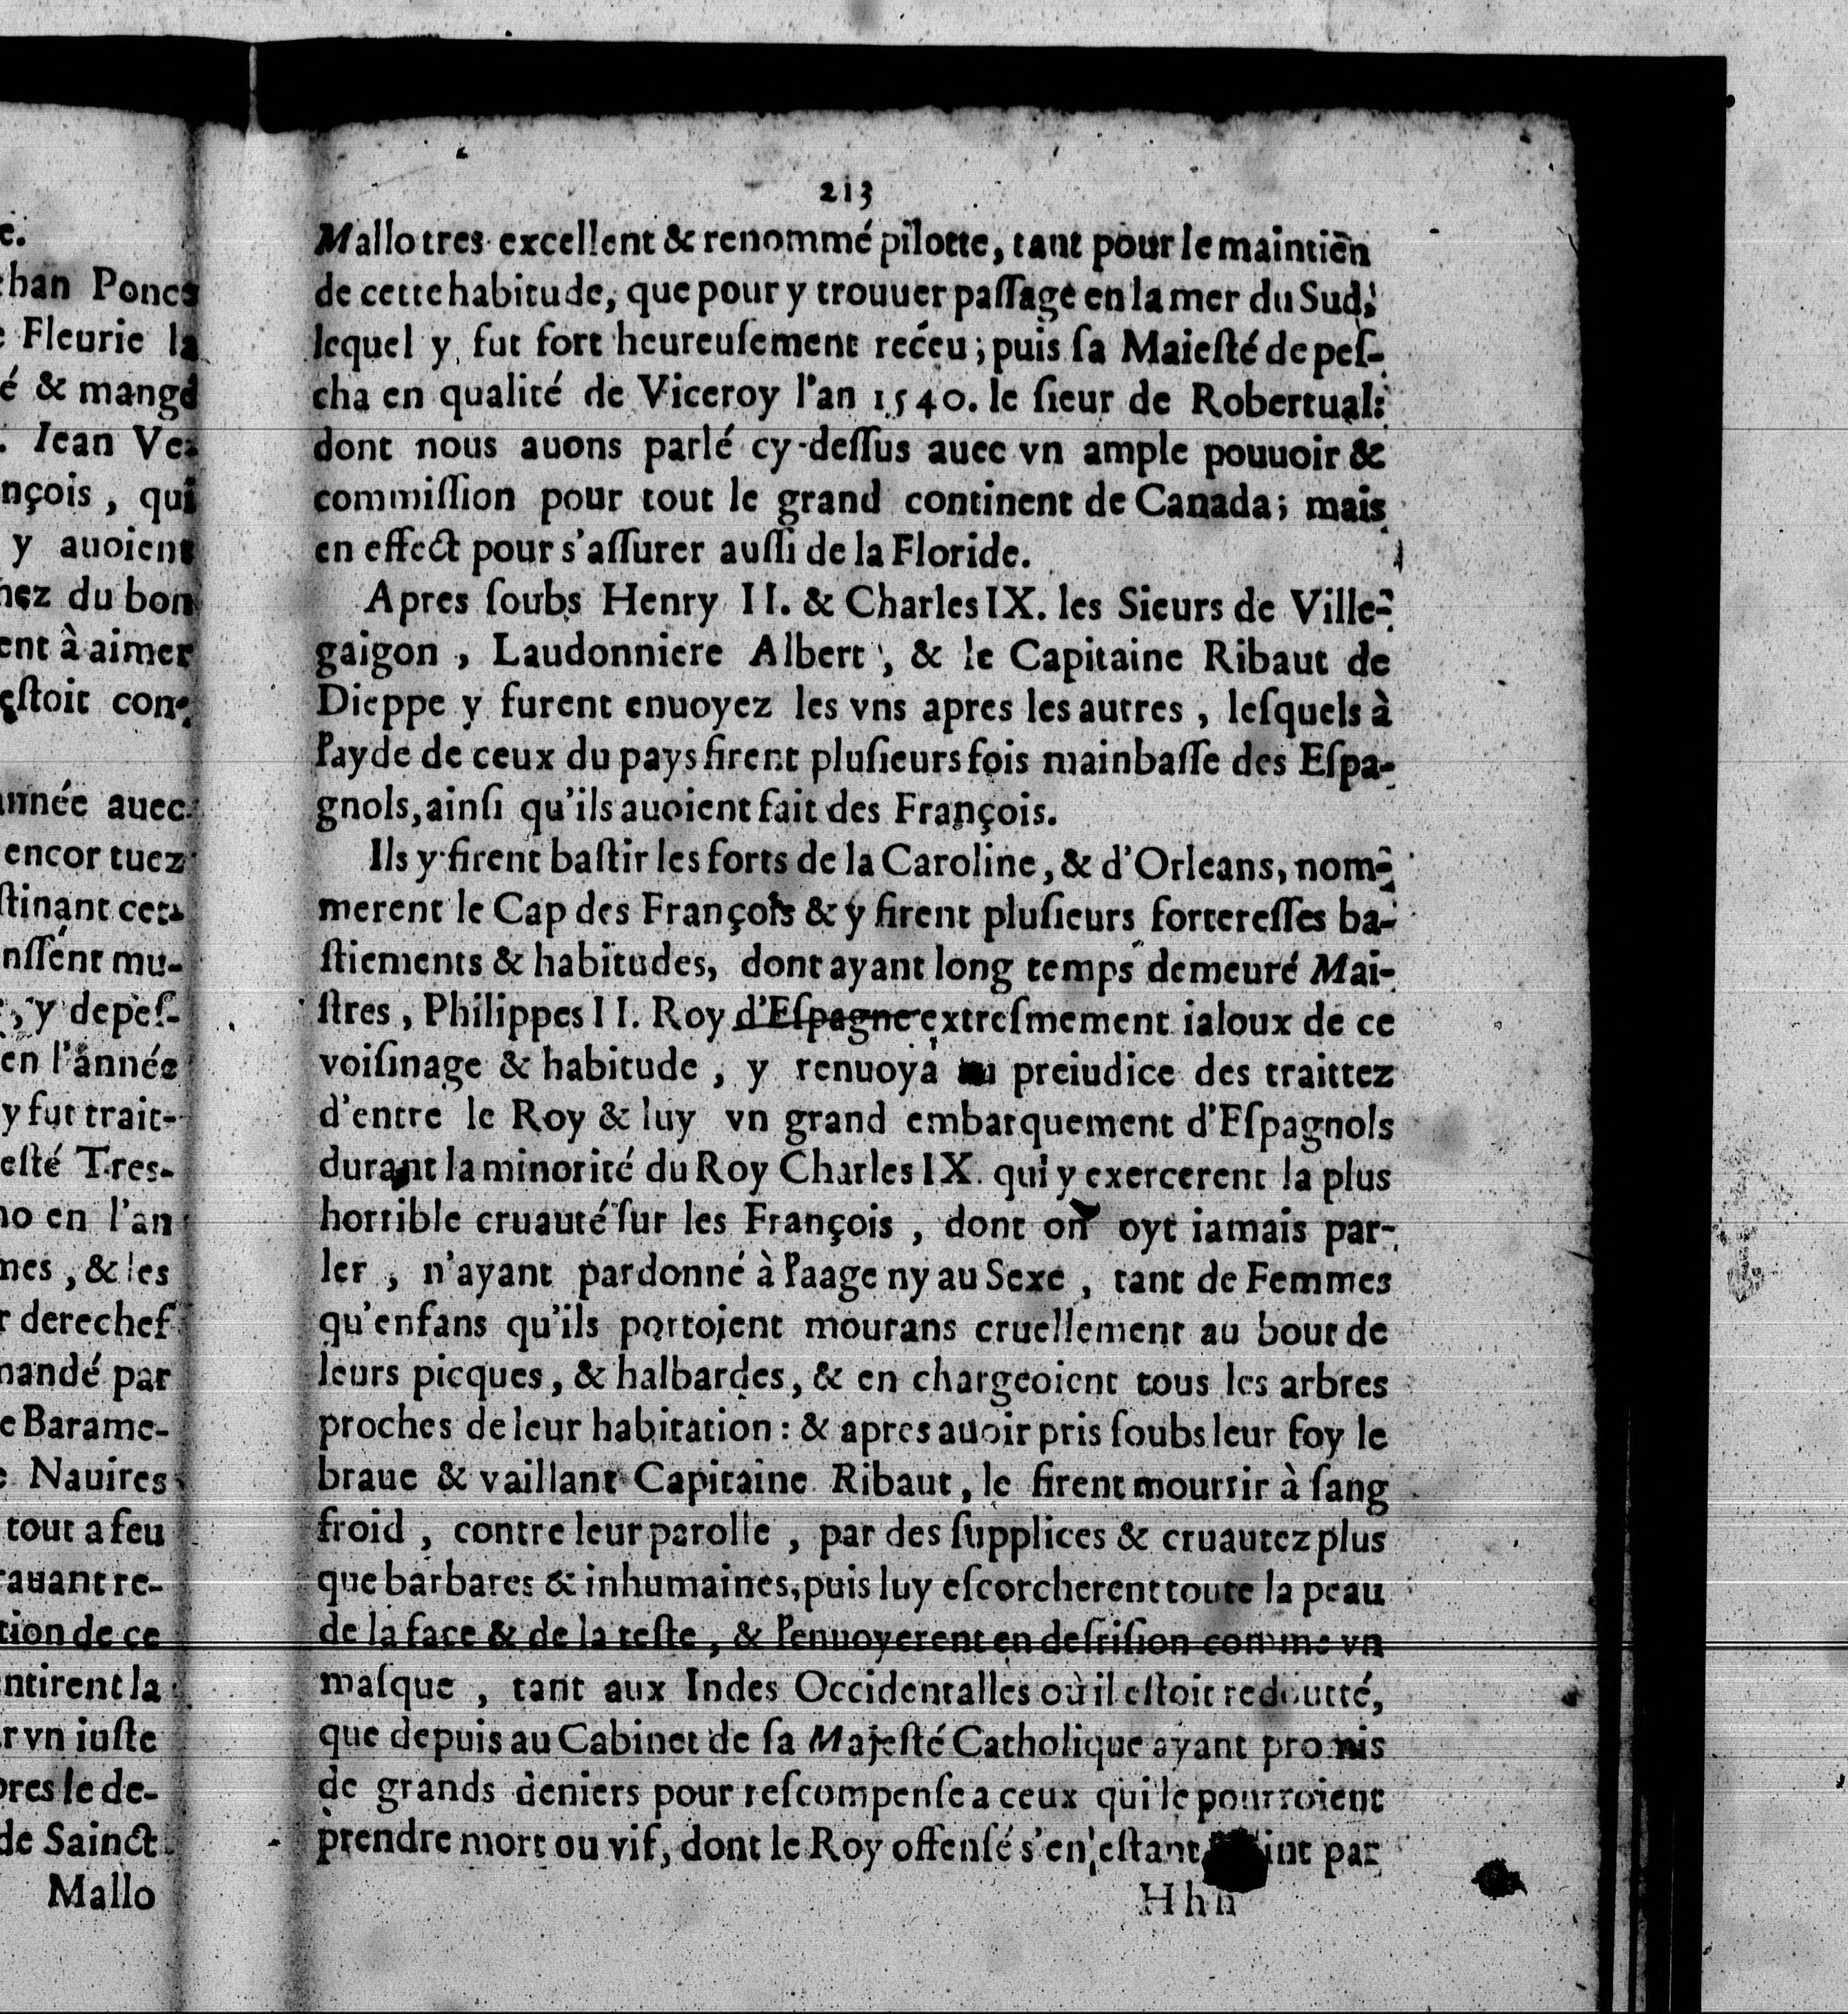 213
Mallo tres excellent & renommé pilotte, tant pour le maintien
de cette habitude, que pour y trouuer paſſage en la mer du Sud,
lequel y fut fort heureuſement receu; puis ſa Maieſté depeſ-
cha en qualité de Viceroy l'an 1540. le ſieur de Robertual:
dont nous auons parlé cy-deſſus auec vn ample pouuoir &
commiſſion pour tout le grand continent de Canada; mais
en effect pour s'aſſurer auſſi de la Floride.
Apres ſoubs Henry II. & Charles IX. les Sieurs de Ville-
gaigon, Laudonniere Albert, & le Capitaine Ribaut de
Dieppe y furent enuoyez les vns apres les autres, leſquels à
l'ayde de ceux du pays firent pluſieurs fois mainbaſſe des Eſpa-
gnols, ainſi qu'ils auoient fait des François.
Ils y firent baſtir les forts de la Caroline, & d'Orleans, nom-
merent le Cap des François & y firent pluſieurs fortereſſes ba-
ſtiements & habitudes, dont ayant long temps demeuré Mai-
ſtres, Philippes II. Roy d'Eſpagne extreſmement ialoux de ce
voiſinage & habitude, y renuoya au preiudice des traittez
d'entre le Roy & luy vn grand embarquement d'Eſpagnols
durant la minorité du Roy Charles IX. qui y exercerent la plus
horrible cruauté ſur les François, dont on oyt iamais par-
ler, n'ayant pardonné à l'aage ny au Sexe, tant de Femmes
qu'enfans qu'ils portoient mourans cruellement au bout de
leurs picques, & halbardes, & en chargeoient tous les arbres
proches de leur habitation: & apres auoir pris ſoubs leur foy le
braue & vaillant Capitaine Ribaut, le firent mourrir à ſang
froid, contre leur parolle, par des ſupplices & cruautez plus
que barbares & inhumaines, puis luy eſcorcherent toute la peau
de la face & de la teſte, & l'enuoyerent en deſriſion comme vn
maſque, tant aux Indes Occidentalles où il eſtoit redoutté,
que depuis au Cabinet de ſa Majeſté Catholique ayant promis
de grands deniers pour reſcompenſe a ceux qui le pourroient
prendre mort ou vif, dont le Roy offenſé s'en eſtant par
Hhh
e.
han Ponce
Fleurie la
é & mangé
. Iean Ve-
nçois, qui
y auoient
hez du bon
ent à aimer
eſtoit con-
année auec
encor tuez
ſtinant cet-
nſſent mu-
, y depeſ-
en l'année
y fut trait-
eſté Tres-
no en l'an
mes, & les
r derechef
mandé par
e Barame-
Nauires
tout a feu
rauant re-
tion de ce
ntirent la
r vn iuſte
pres le de-
de Sainct
Mallo